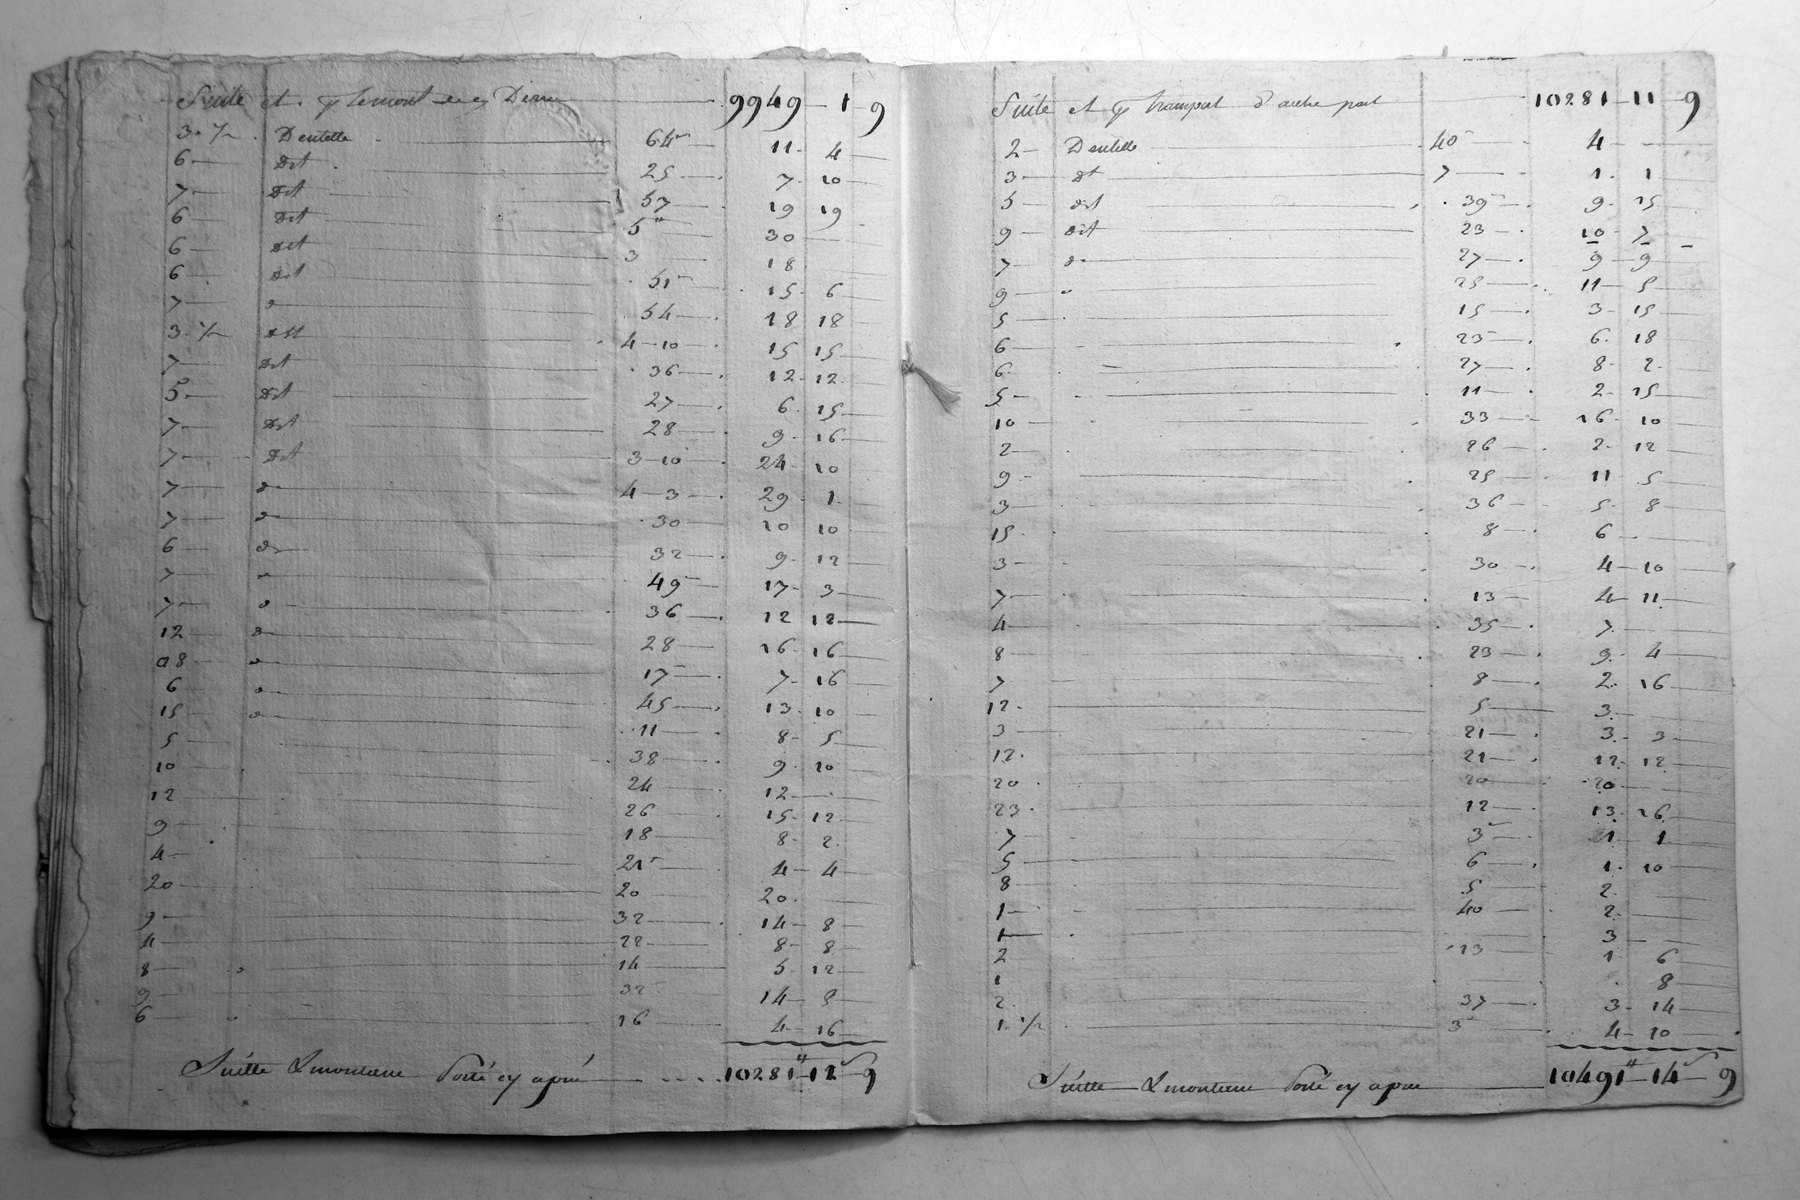 Suite et 9949 1 9
3 ½ Dentelle 64 11 4
6 Dit 25 7 10
7 Dit 57 19 19
6 Dit 5 30
6 Dit 3 18
6 Dit 51 15 6
7 d 54 18 18
3 ½ Dit 4 10 15 15
7 Dit 36 12 12
5 Dit 27 6 15
7 Dit 28 9 16
7 Dit 3 10 24 10
7 d 4 3 29 1
7 d 30 10 10
6 d 32 9 12
7 49 17 3
7 d 36 12 12
12 d 28 16 16
8 17 7 16
6 45 13 10
15 11 8 5
5 38 9 10
10 24 12
12 26 15 12
9 18 8 2
4 21 4 4
20 20 20
9 32 14 8
4 22 8 8
8 14 5 12
9 32 14 8
6 16 4 16
Suitte & montenne Porté cy aprè 10281 12 9
Suite et transport d'autre part 10281 11 9
2 Dentelle 40 4
3 dt 7 1 1
5 dit 39 9 15
9 dit 23 10 7
7 d 27 9 9
9 25 11 5
5 15 3 15
6 23 6 18
6 27 8 2
5 11 2 15
10 33 16 10
2 26 2 12
9 25 11 5
3 36 5 8
15 8 6
3 30 4 10
7 13 4 11
4 35 7
8 23 9 4
7 8 2 16
12 5 3
3 21 3 3
12 21 12 12
20 20 20
23 12 13 16
7 3 1 1
5 6 1 10
8 5 2
1 40 2
1 3
2 13 1 6
1 8
2 37 3 14
1 ½ 3 4 10
Suitte & montenne Porté cy apres 10491 14 9